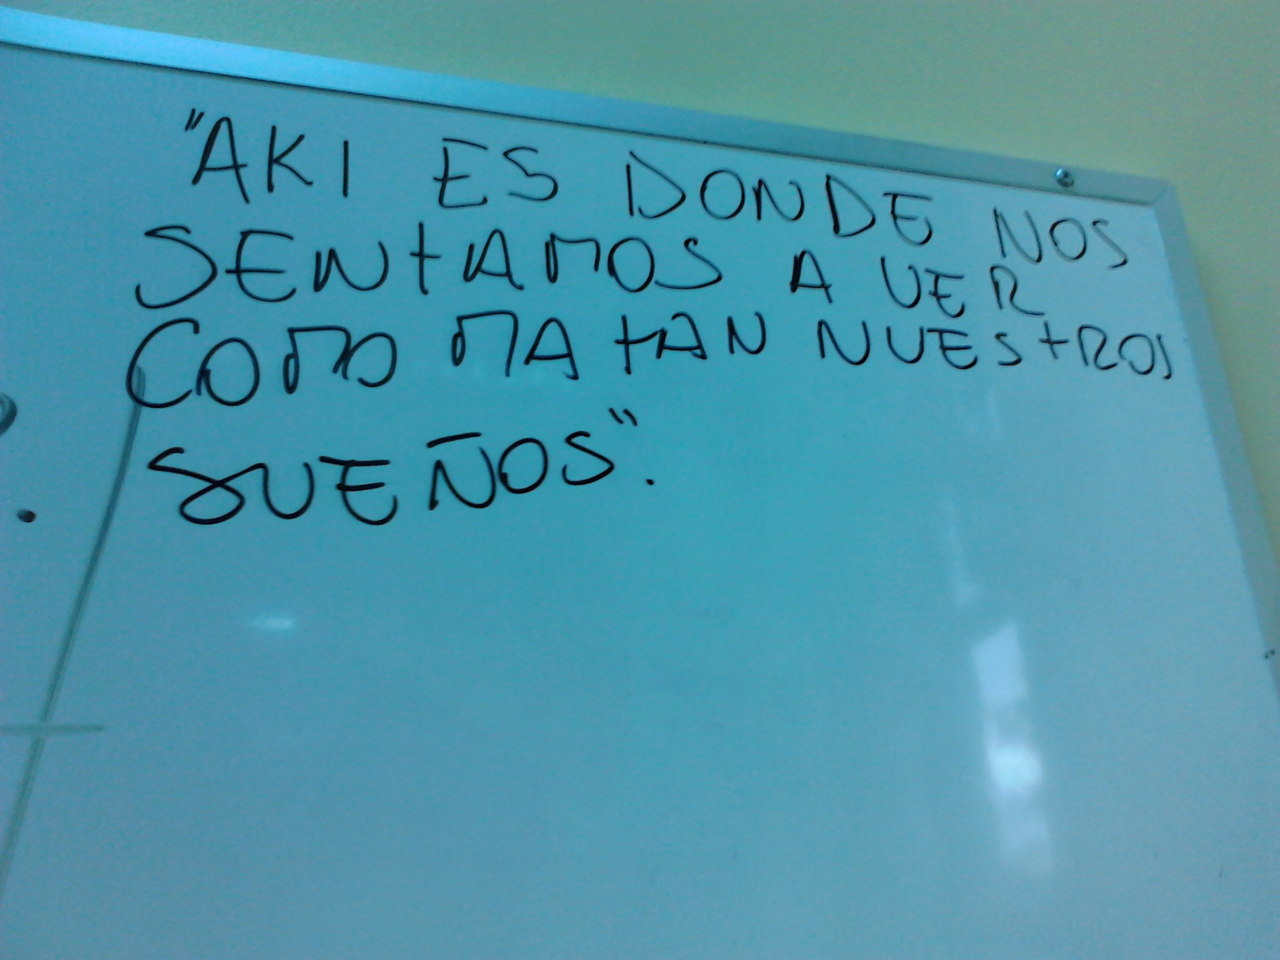 "AKI ES DONDE NOS
SENTAMOS A VER
COMO MATAN NUESTROS
SUEÑOS".